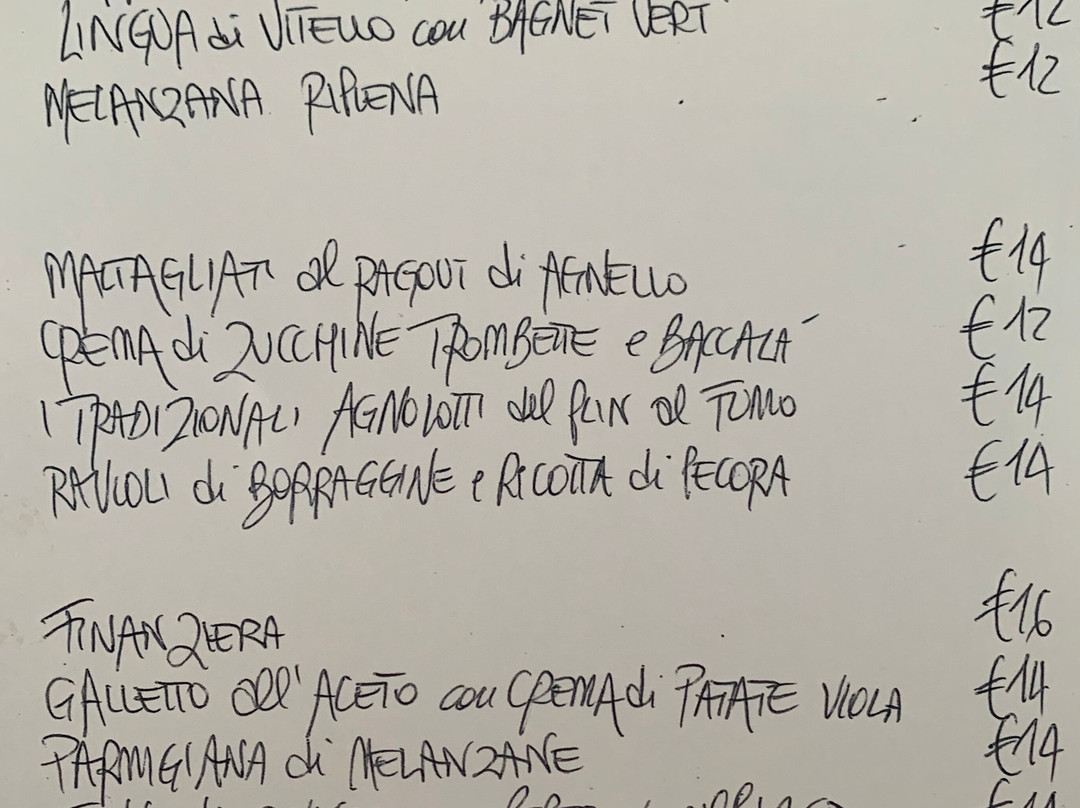 LINGUA di VITELLO con BAGNET VERT €12
MELANZANA RIPIENA €12
MALTAGLIATI al RAGOUT di AGNELLO €14
CREMA di ZUCCHINE TROMBETTE e BACCALÀ €12
I TRADIZIONALI AGNOLOTTI del plin al TUMO €14
RAVIOLI di BORRAGGINE e RICOTTA di PECORA €14
FINANZIERA €16
GALLETTO all'ACETO con CREMA di PATATE VIOLA €14
PARMIGIANA di MELANZANE €14